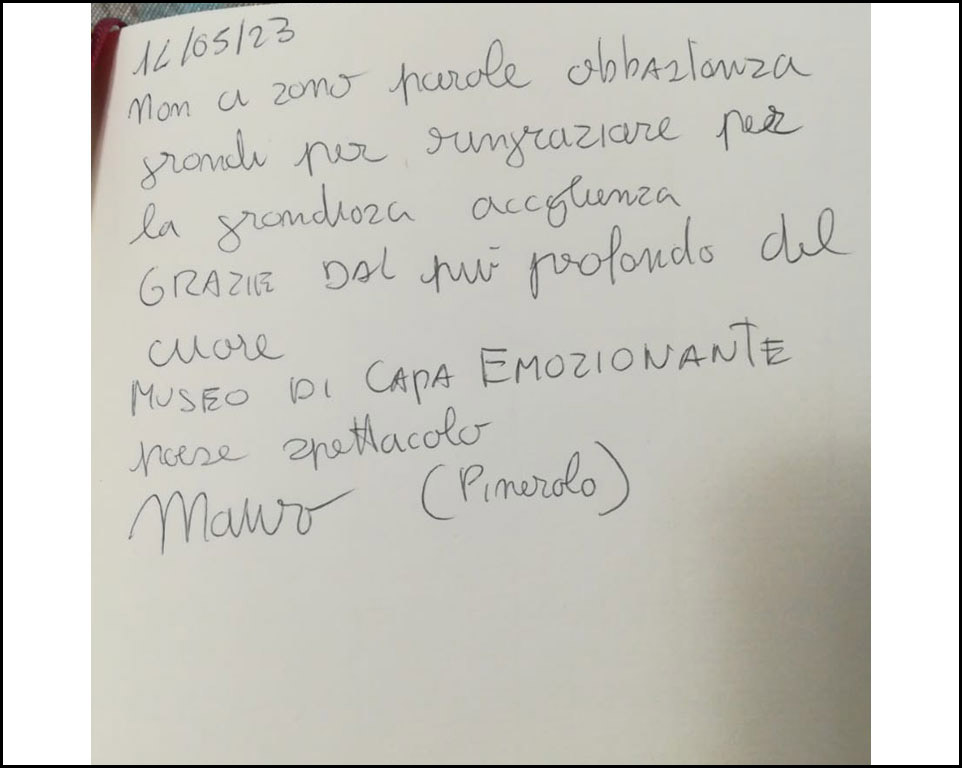 16/05/23
Non ci sono parole abbastanza
grandi per ringraziare per
la grandiosa accoglienza
GRAZIE DAL più profondo del
cuore
MUSEO DI CAPA EMOZIONANTE
paese spettacolo
Mauro (Pinerolo)